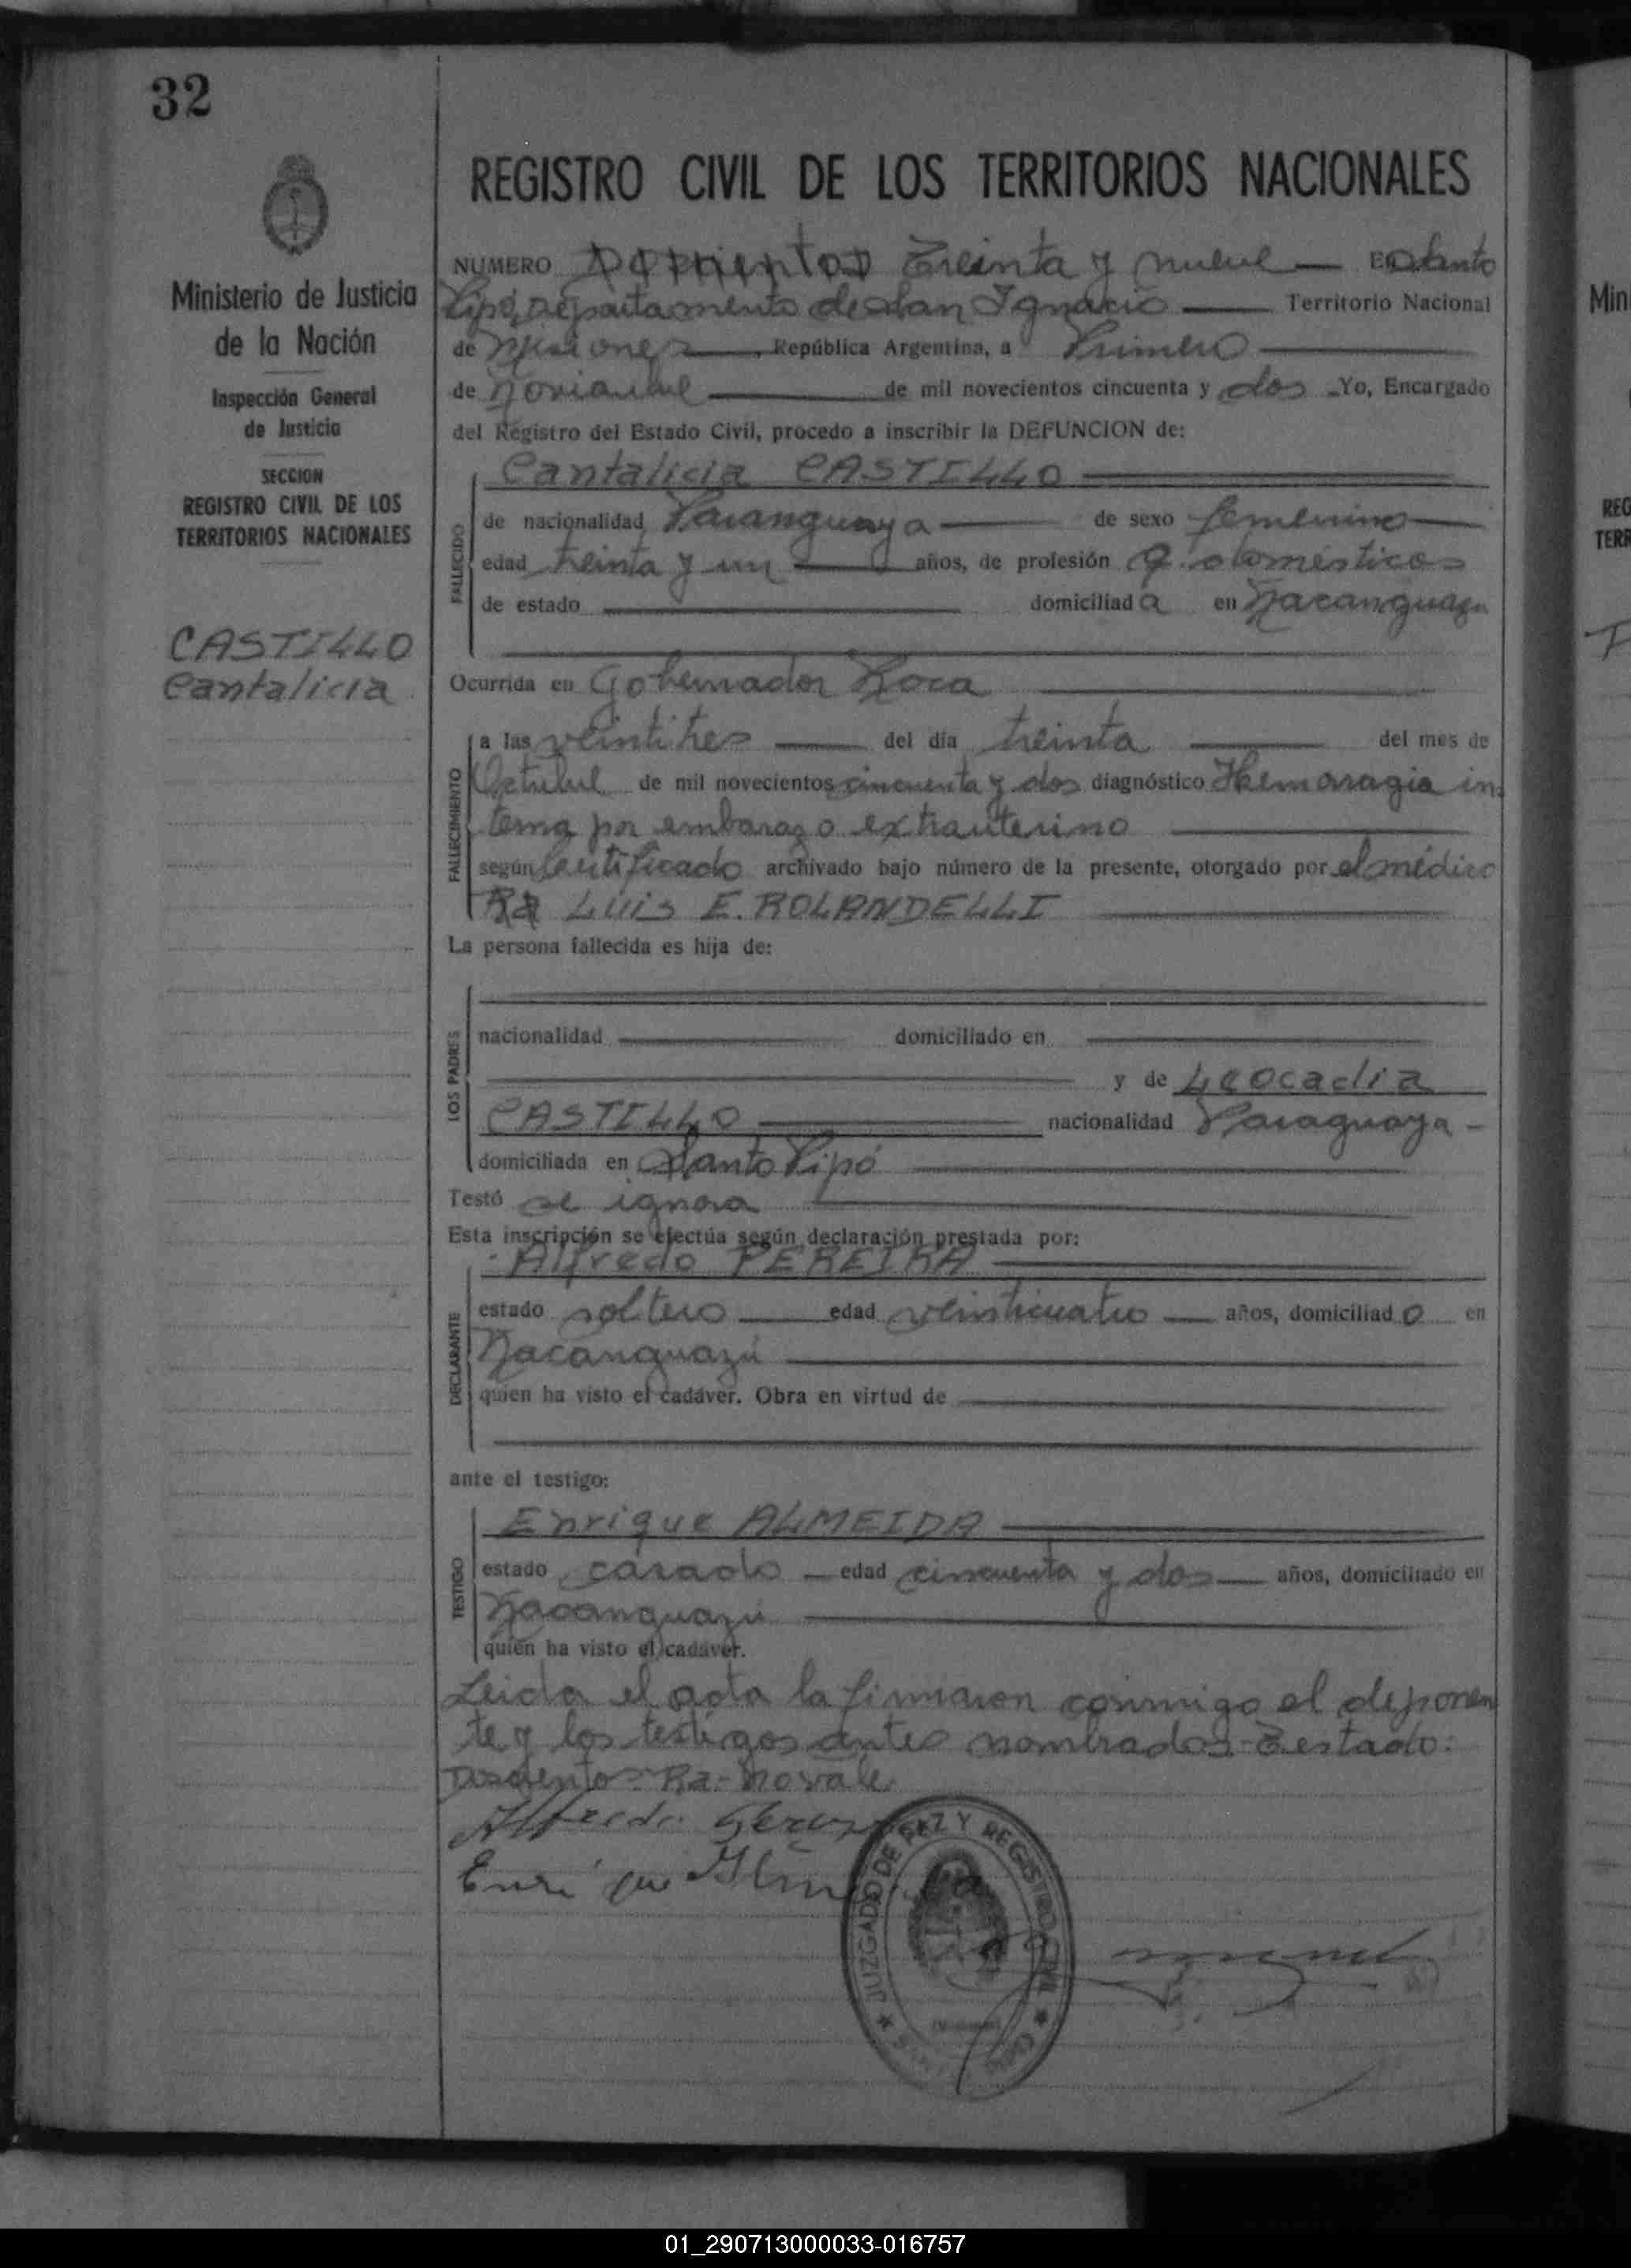 32
REGISTRO CIVIL DE LOS TERRITORIOS NACIONALES
Ministerio de Justicia
de la Nación
Inspección General
de Justicia
SECCION
REGISTRO CIVIL DE LOS
TERRITORIOS NACIONALES
CASTILLO
Cantalicia
NUMERO Treinta y nueve — En Santo
Pipó, departamento de San Ignacio — Territorio Nacional
de Misiones —, República Argentina, a Primero —
de Noviembre — de mil novecientos cincuenta y dos - Yo, Encargado
del Registro del Estado Civil, procedo a inscribir la DEFUNCION de:
Cantalicia CASTILLO —
FALLECIDO
de nacionalidad Paranguaya — de sexo femenino —
edad treinta y un — años, de profesión Q. domésticos
de estado — domiciliada en Ñacanguazu
Ocurrida en Gobernador Roca —
FALLECIMIENTO
a las veintitres — del día treinta — del mes de
Octubre de mil novecientos cincuenta y dos diagnóstico Hemoragia in-
terna por embarazo extrauterino —
según certificado archivado bajo número de la presente, otorgado por el médico
Luis E. ROLANDELLI —
La persona fallecida es hija de:
LOS PADRES
nacionalidad — domiciliado en —
— y de Leocadia
CASTILLO — nacionalidad Paraguaya -
domiciliada en Santo Pipó —
Testó se ignora —
Esta inscripción se efectúa según declaración prestada por:
Alfredo PEREIRA —
DECLARANTE
estado soltero — edad veinticuatro — años, domiciliado en
Ñacanguazú —
quien ha visto el cadáver. Obra en virtud de —
ante el testigo:
Enrique ALMEIDA —
TESTIGO
estado casado — edad cincuenta y dos — años, domiciliado en
Ñacanguazú —
quien ha visto el cadáver.
Leida el acta la firmaron conmigo el deponen
te y los testigos antes nombrados - Testado:
Ra - no vale
Alfredo
Enrique
JUZGADO DE PAZ Y REGISTRO CIVIL
Min
REG
TERR
01_290713000033-016757